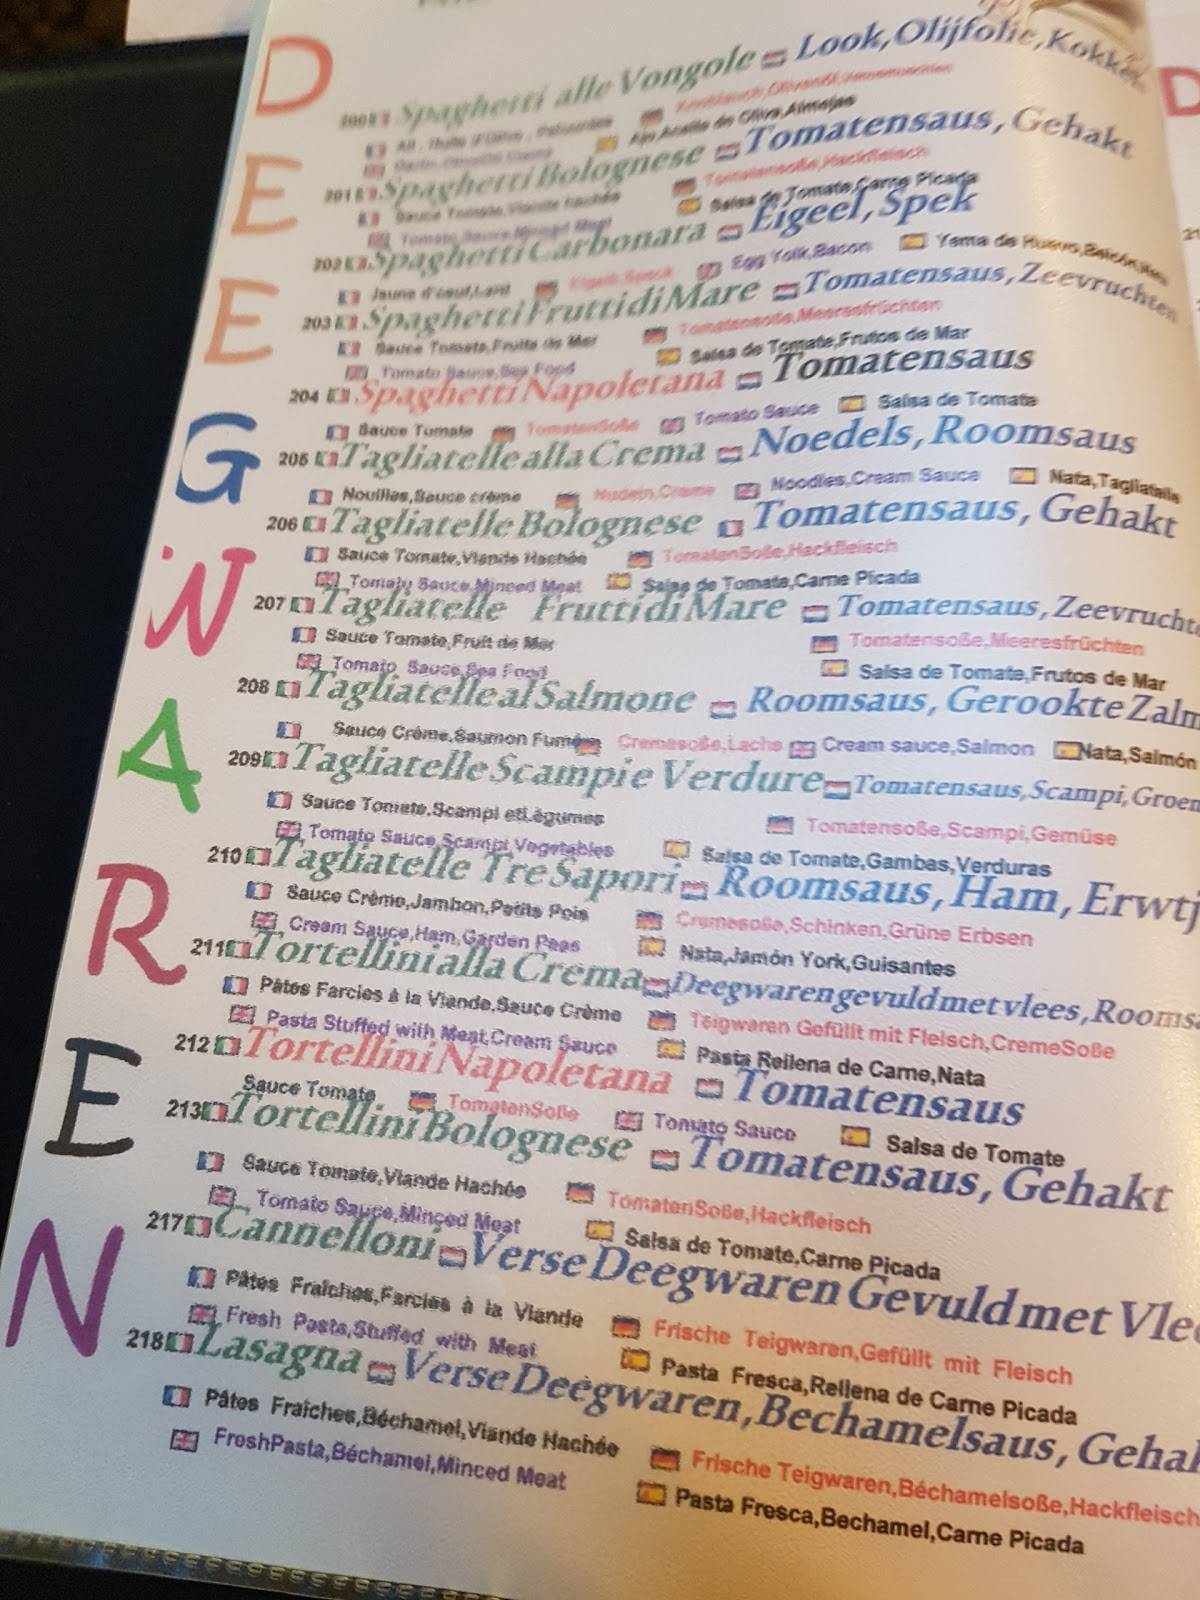 DEEGWAREN
200 Spaghetti alle Vongole Look, Olijfolie, Kokkels
Ail
Ajo, Aceite de Oliva, Almejas
201 Spaghetti Bolognese Tomatensaus, Gehakt
Tomatensoße, Hackfleisch
Sauce Tomate, Viande Hachée
Salsa de Tomate, Carne Picada
Tomato Sauce, Minced Meat
202 Spaghetti Carbonara Eigeel, Spek
Jaune d'oeuf, Lard
Egg Yolk, Bacon
Yema de Huevo
203 Spaghetti Frutti di Mare Tomatensaus, Zeevruchten
Sauce Tomate, Fruits de Mer
Tomatensoße, Meeresfrüchten
Tomato Sauce, Sea Food
Salsa de Tomate, Frutos de Mar
204 Spaghetti Napoletana Tomatensaus
Sauce Tomate TomatenSoße Tomato Sauce Salsa de Tomate
205 Tagliatelle alla Crema Noedels, Roomsaus
Nouilles, Sauce crème Nudeln, Creme Noodles, Cream Sauce Nata, Tagliatelle
206 Tagliatelle Bolognese Tomatensaus, Gehakt
Sauce Tomate, Viande Hachée TomatenSoße, Hackfleisch
Tomato Sauce, Minced Meat Salsa de Tomate, Carne Picada
207 Tagliatelle Frutti di Mare Tomatensaus, Zeevruchte
Sauce Tomate, Fruit de Mer Tomatensoße, Meeresfrüchten
Tomato Sauce, Sea Food Salsa de Tomate, Frutos de Mar
208 Tagliatelle al Salmone Roomsaus, Gerookte Zalm
Sauce Crème, Saumon Fumé Cremesoße, Lachs Cream sauce, Salmon Nata, Salmón
209 Tagliatelle Scampi e Verdure Tomatensaus, Scampi, Groen
Sauce Tomate, Scampi et Légumes Tomatensoße, Scampi, Gemüse
Tomato Sauce, Scampi, Vegetables Salsa de Tomate, Gambas, Verduras
210 Tagliatelle Tre Sapori Roomsaus, Ham, Erwtj
Sauce Crème, Jambon, Petits Pois Cremesoße, Schinken, Grüne Erbsen
Cream Sauce, Ham, Garden Peas Nata, Jamón York, Guisantes
211 Tortellini alla Crema Deegwaren gevuld met vlees, Rooms
Pâtes Farcies à la Viande, Sauce Crème Teigwaren Gefüllt mit Fleisch, CremeSoße
Pasta Stuffed with Meat, Cream Sauce Pasta Rellena de Carne, Nata
212 Tortellini Napoletana Tomatensaus
Sauce Tomate TomatenSoße Tomato Sauce Salsa de Tomate
213 Tortellini Bolognese Tomatensaus, Gehakt
Sauce Tomate, Viande Hachée TomatenSoße, Hackfleisch
Tomato Sauce, Minced Meat Salsa de Tomate, Carne Picada
217 Cannelloni Verse Deegwaren Gevuld met Vlee
Pâtes Fraîches, Farcies à la Viande Frische Teigwaren, Gefüllt mit Fleisch
Fresh Pasta, Stuffed with Meat Pasta Fresca, Rellena de Carne Picada
218 Lasagna Verse Deegwaren, Bechamelsaus, Gehak
Pâtes Fraîches, Béchamel, Viande Hachée Frische Teigwaren, Béchamelsoße, Hackfleisch
FreshPasta, Béchamel, Minced Meat Pasta Fresca, Bechamel, Carne Picada
D